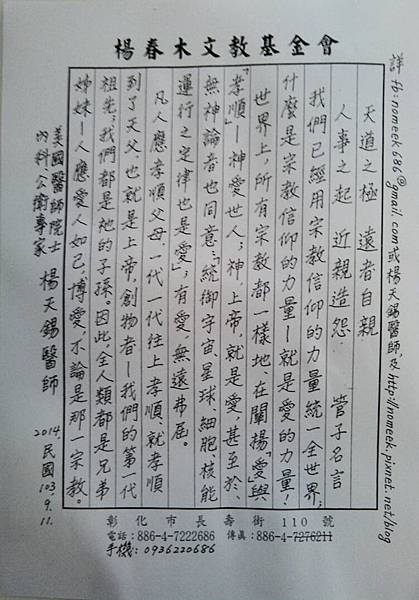 楊春木文教基金會
詳 fb: nomeek686@gmail.com 或 楊天錫醫師, 及 http://nomeek.pixnet.net/blog
天道之極 遠者自親
人事之起 近親造怨 管子名言
我們已經用宗教信仰的力量統一全世界;
什麼是宗教信仰的力量—就是愛的力量!
世界上,所有宗教都一樣地在闡揚「愛」與
「孝順」—神愛世人;神,上帝,就是愛,甚至於、
無神論者也同意:「統御宇宙、星球、細胞、核能
運行之定律也是愛」;有愛,無遠弗屆。
凡人應孝順父母,一代一代往上孝順,就孝順
到了天父,也就是上帝,創物者—我們的第一代
祖先;我們都是祂的子孫。因此,全人類都是兄弟
姊妹—人應愛人如己,博愛,不論是那一宗教。
美國醫師院士
內科公衛專家 楊天錫醫師 2014,民國103.9.11.
彰化市長壽街110號
電話:886-4-7222686 傳真:886-4-7276211
手機:0936220686